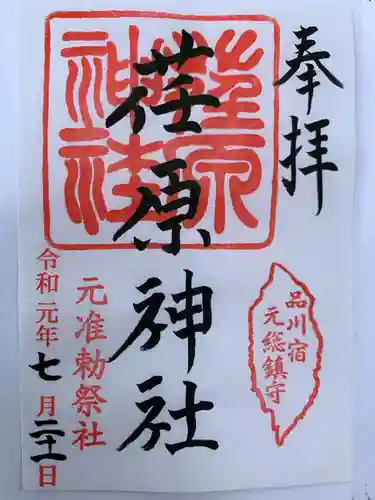 奉拝
荏原神社
荏原神社
品川宿
元総鎮守
元准勅祭社
令和元年七月二十一日